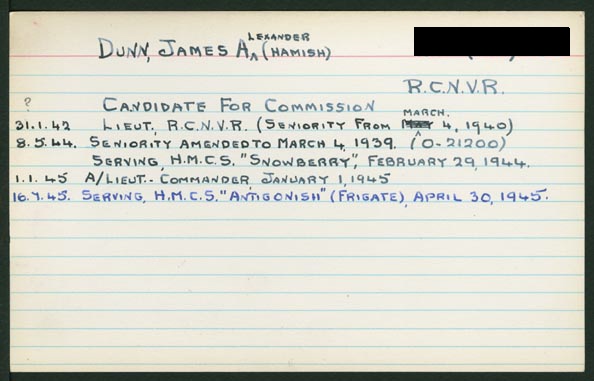 DUNN, JAMES A^LEXANDER (HAMISH)
R.C.N.V.R.
? CANDIDATE FOR COMMISSION
31.1.42 LIEUT., R.C.N.V.R. (SENIORITY FROM MARCH 4, 1940)
8.5.44. SENIORITY AMENDED TO MARCH 4, 1939. (O-21200)
SERVING, H.M.C.S. "SNOWBERRY", FEBRUARY 29, 1944.
1.1.45 A/LIEUT.-COMMANDER, JANUARY 1, 1945
16.7.45. SERVING, H.M.C.S. "ANTIGONISH" (FRIGATE), APRIL 30, 1945.